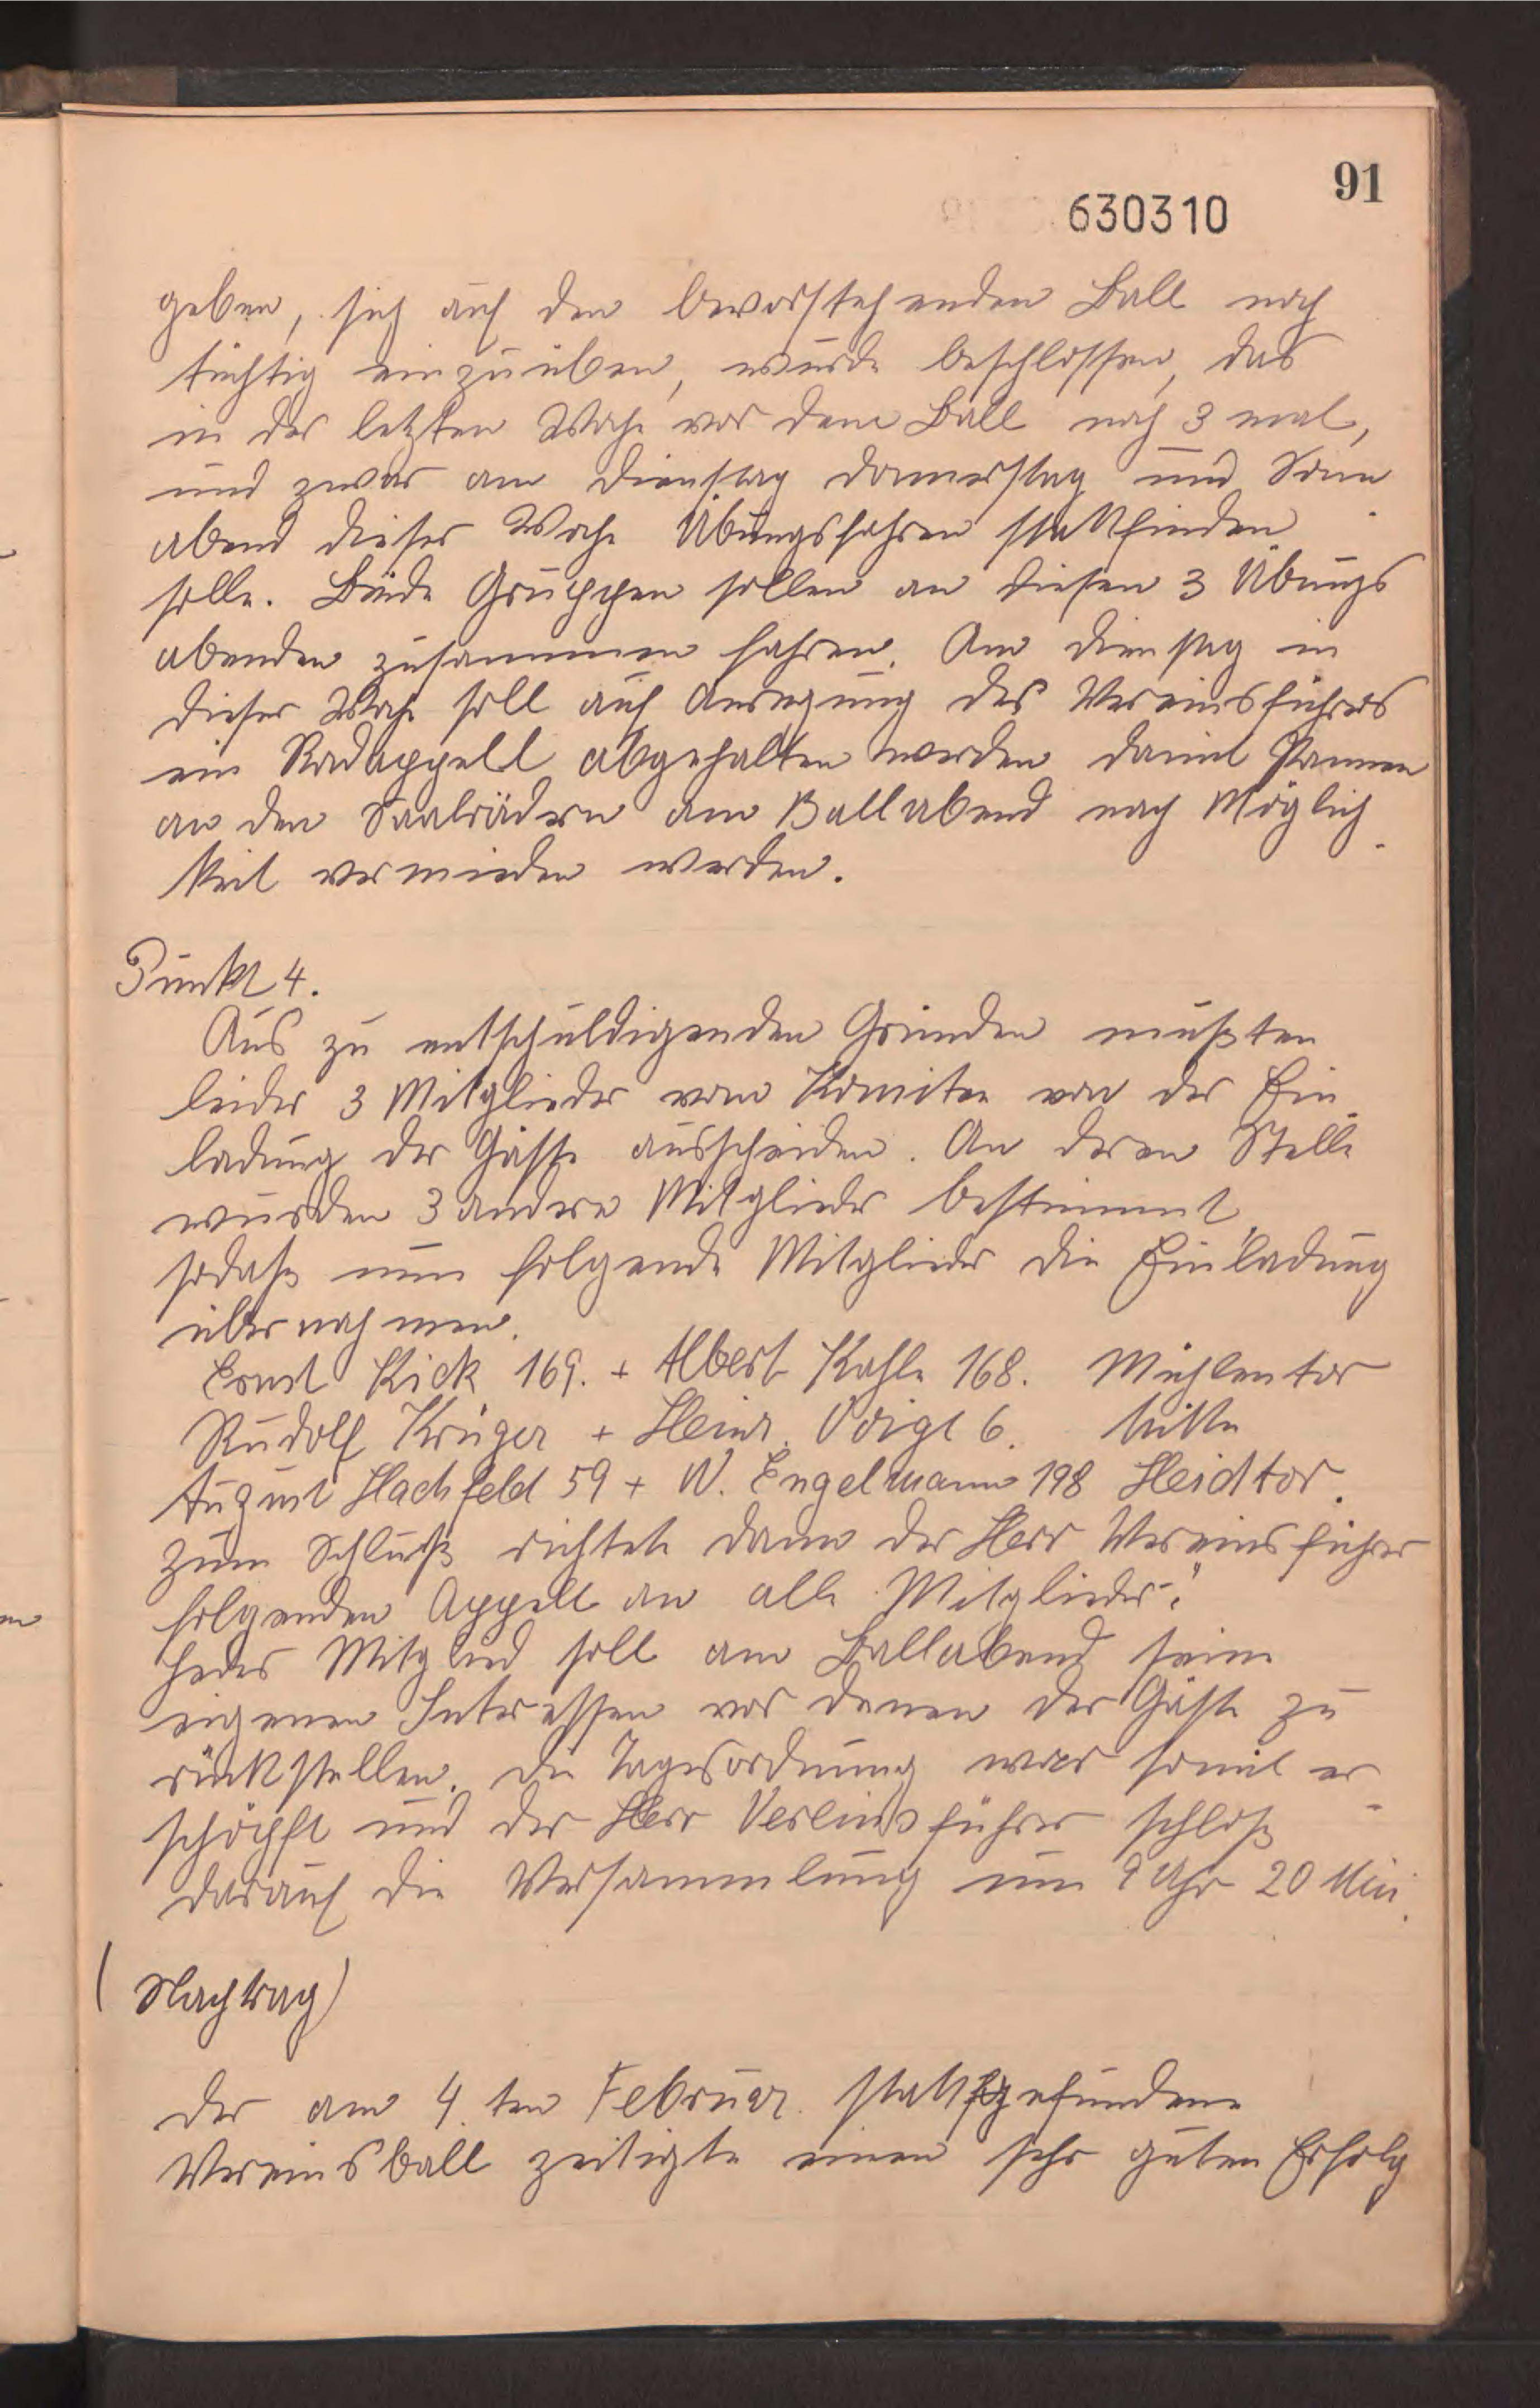 91
630310
geben, sich auf den bevorstehenden Ball noch
tüchtig einzuüben, wurde beschlossen, das
in der letzten Woche vor dem Ball noch 3 mal,
und zwar am Dienstag Donnerstag und Sonn
abend dieser Woche Übungsfahren stattfinden
solle. Beide Gruppen sollen an diesen 3 Übungs
abenden zusammen fahren. Am Dienstag in
dieser Woche soll auf Anregung des Vereinsführers
ein Radappell abgehalten werden damit Pannen
an den Saalrädern am Ballabend nach Möglich
keit vermieden werden.
Punkt 4.
Aus zu entschuldigenden Gründen mußten
leider 3 Mitglieder vom Komitee von der Ein
ladung der Gäste ausscheiden. An deren Stelle
wurden 3 andere Mitglieder bestimmt,
sodaß nun folgende Mitglieder die Einladung
übernahmen.
Ernst Kick 169. + Albert Kahle 168. Mühlentor
Rudolf Krüger + Heinr. Voigt 6. Mitte
August Hachfeld 59 + W. Engelmann 198 Heidtor.
Zum Schluß richtete dann der Herr Vereinsführer
folgenden Appell an alle Mitglieder:"
Jedes Mitglied soll am Ballabend seine
eigenen Interessen vor denen der Gäste zu
rückstellen. Die Tagesordnung war somit er
schöpft und der Herr Vereinsführer schloß
darauf die Versammlung um 9 Uhr 20 Min.
(Nachtrag)
Der am 4. ten Februar stattgefundene
Vereinsball zeitigte einen sehr guten Erfolg